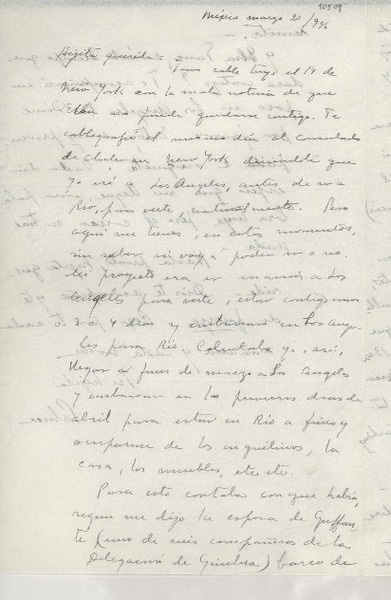 10509
México marzo 20/946
Hijita querida:
cable tuyo el 14 de
New York con la mala noticia de que
no puede quedarse contigo. Te
cablegrafié el mismo día al consulado
de Chile en New York diciéndole que
yo iré a Los Angeles, antes de ir a
Río, para verte, naturalmente. Pero
aquí me tienes, en estos momentos,
sin saber si voy a poder ir o no.
Mi proyecto era ir en avión a Los
Angeles para verte, estar contigo unos
3 o 4 días y embarcarme en Los Ange-
les para Río. Calculaba yo, así,
llegar a fines de marzo a Los Angeles
y embarcar en los primeros días de
abril para estar en Río a fines y
ocuparme de los inquilinos, la
casa, los muebles, etc. etc.
Para esto contaba con que había,
según me dijo la esposa de Guffan-
te (uno de mis compañeros de la
Delegación de Ginebra) barco de